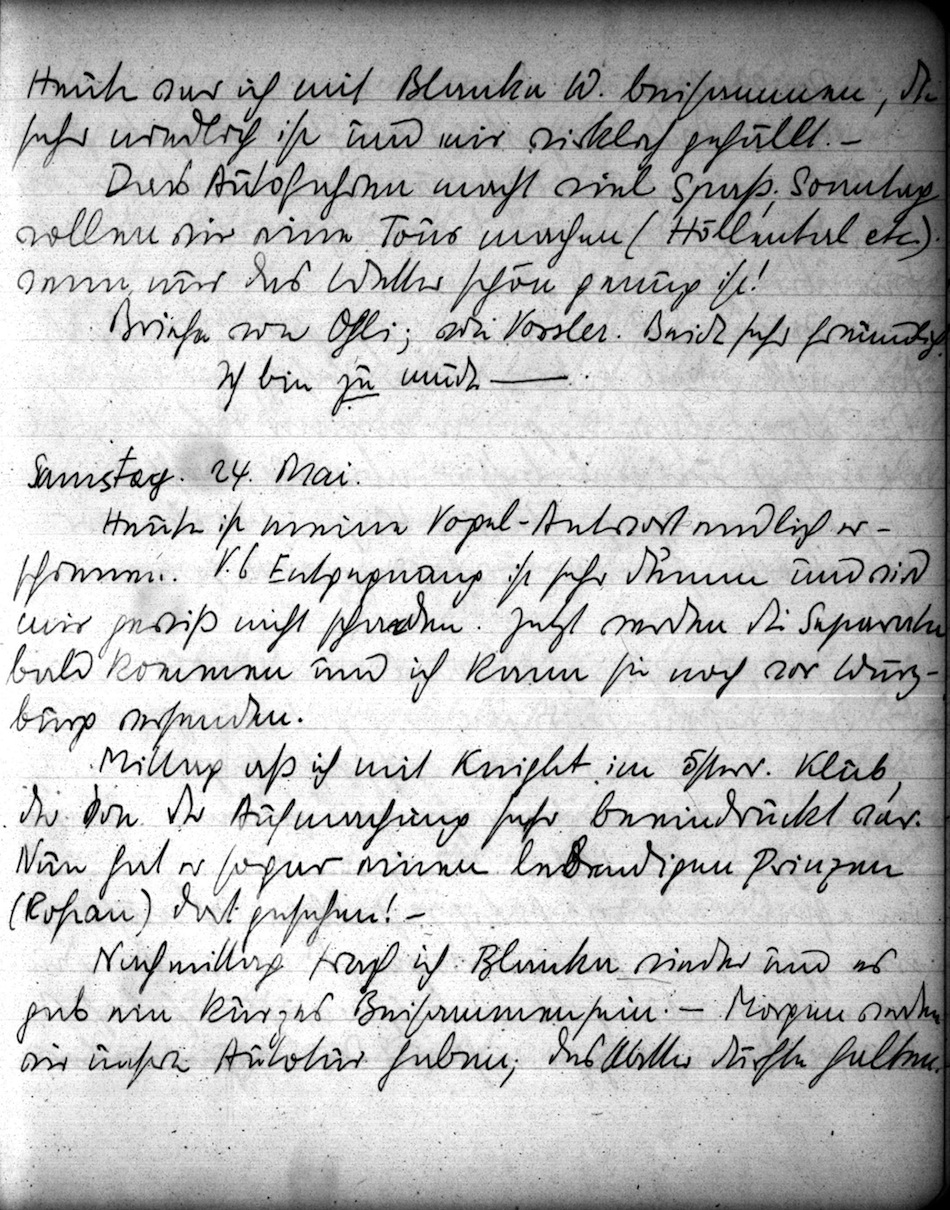 Heute war ich mit Blanka W. beisammen, die
sehr niedlich ist und mir wirklich gefällt. –
Das Autofahren macht viel Spaß; Sonntag
wollen wir eine Tour machen (Höllental etc.).
wenn nur das Wetter schön genug ist!
Briefe von Olli; von Vossler. Beide sehr freundlich
Ich bin zu müde —
Samstag. 24. Mai.
Heute ist meine Vogel-Antwort endlich er-
schienen. V.s Entgegnung ist sehr dumm und wird
mir gewiß nicht schaden. Jetzt werden die Separata
bald kommen und ich kann sie noch vor Würz-
burg versenden.
Mittag aß ich mit Knight im österr. Klub,
der von der Aufmachung sehr beeindruckt war.
Nun hat er sogar einen lebendigen Prinzen
(Rohan) dort gesehen! –
Nachmittag traf ich Blanka wieder und es
gab ein kurzes Beisammensein. – Morgen werden
wir unsere Autotur haben; das Wetter dürfte halten.